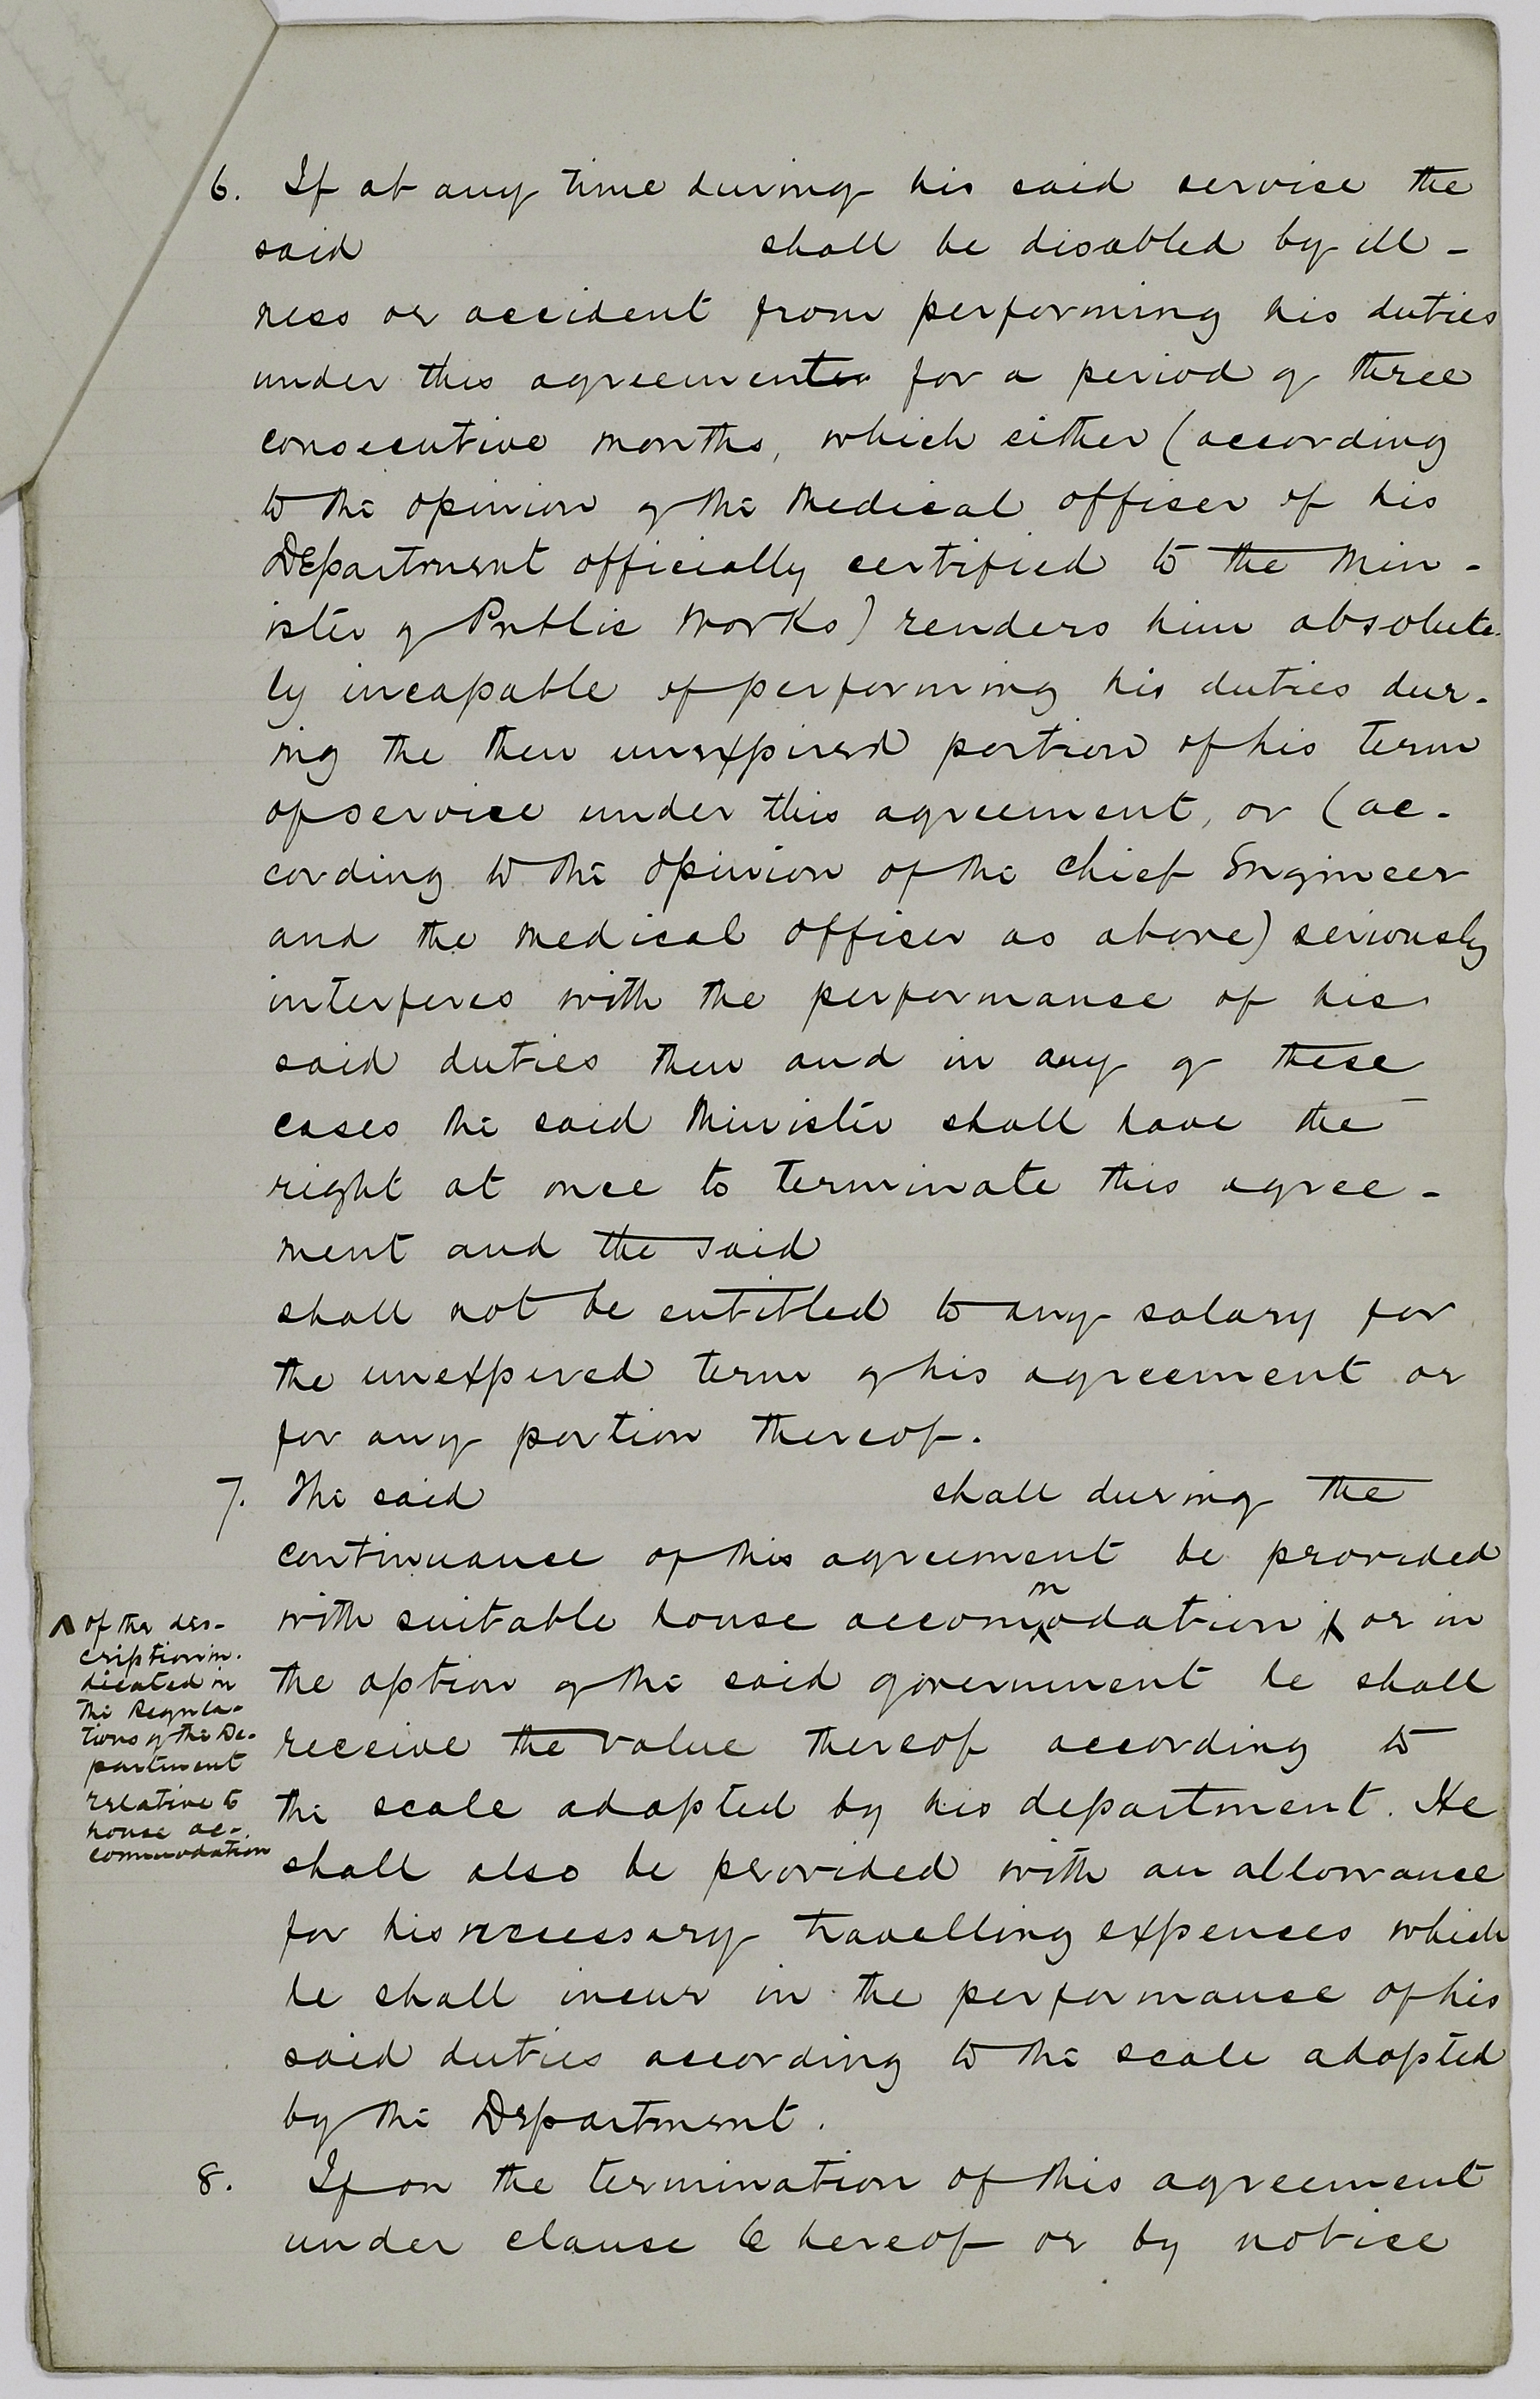 6. If at any time during his said service the
said shall be disabled by ill-
ness or accident from performing his duties
under this agreement for a period of three
consecutive months, which either (according
to the opinion of the Medical officer of his
Department officially certified to the Min-
ister of Public Works) renders him absolute-
ly incapable of performing his duties dur-
ing the then unexpired portion of his term
of service under this agreement, or (ac-
cording to the opinion of the Chief Engineer
and the Medical Officer as above) seriously
interferes with the performance of his
said duties then and in any of these
cases the said Minister shall have the
right at once to terminate this agree-
ment and the said
shall not be entitled to any salary for
the unexpired term of his agreement or
for any portion thereof.
7. The said shall during the
continuance of this agreement be provided
with suitable house accommodation ʌ or in
the option of the said government he shall
receive the value thereof according to
the scale adopted by his department. He
shall also be provided with an allowance
for his necessary travelling expenses which
he shall incur in the performance of his
said duties according to the scale adopted
by the Department.
ʌ of the des-
cription in-
dicated in
the Regula-
tions of the De-
partment
relative to
house ac-
commodation
8. If on the termination of this agreement
under clause 6 hereof or by notice